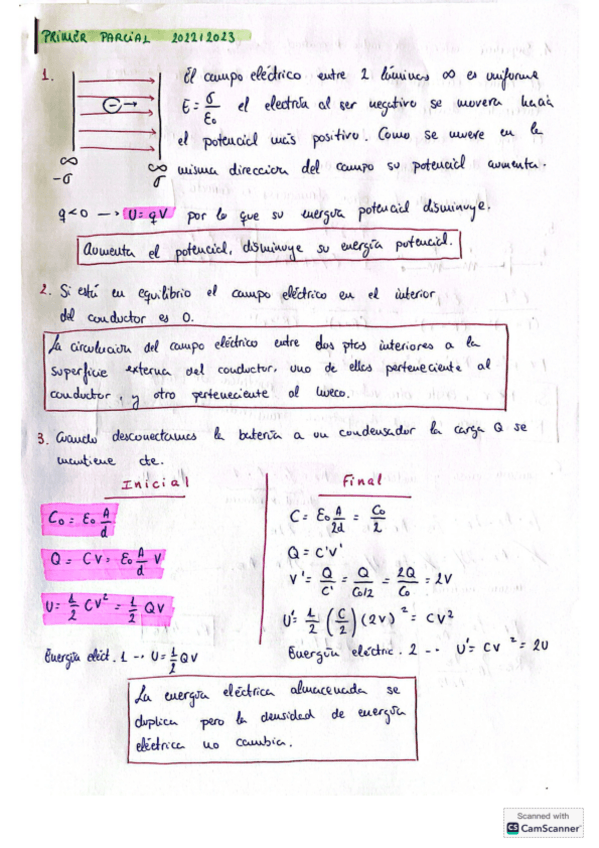 PRIMER PARCIAL 2022/2023
1. El campo eléctrico entre 2 láminas ∞ es uniforme
E = σ/ε₀ el electrón al ser negativo se movera hacia
el potencial más positivo. Como se mueve en la
misma direccion del campo su potencial aumenta.
∞ ∞
-σ σ
q<0 → U=qV por lo que su energía potencial disminuye.
Aumenta el potencial, disminuye su energía potencial.
2. Si está en equilibrio el campo eléctrico en el interior
del conductor es 0.
La circulación del campo eléctrico entre dos ptos interiores a la
superficie externa del conductor, uno de ellos perteneciente al
conductor, y otro perteneciente al hueco.
3. Cuando desconectamos la batería a un condensador la carga Q se
mantiene cte.
Inicial
C₀ = ε₀ A/d
Q = CV = ε₀ A/d V
U = 1/2 CV² = 1/2 QV
Energía eléct. 1 -- U = 1/2 QV
Final
C = ε₀ A/2d = C₀/2
Q = C'V'
V' = Q/C' = Q/C₀/2 = 2Q/C₀ = 2V
U' = 1/2 (C/2) (2V)² = CV²
Energía eléctric. 2 -- U' = CV² = 2U
La energía eléctrica almacenada se
duplica pero la densidad de energía
eléctrica no cambia.
Scanned with
CS CamScanner